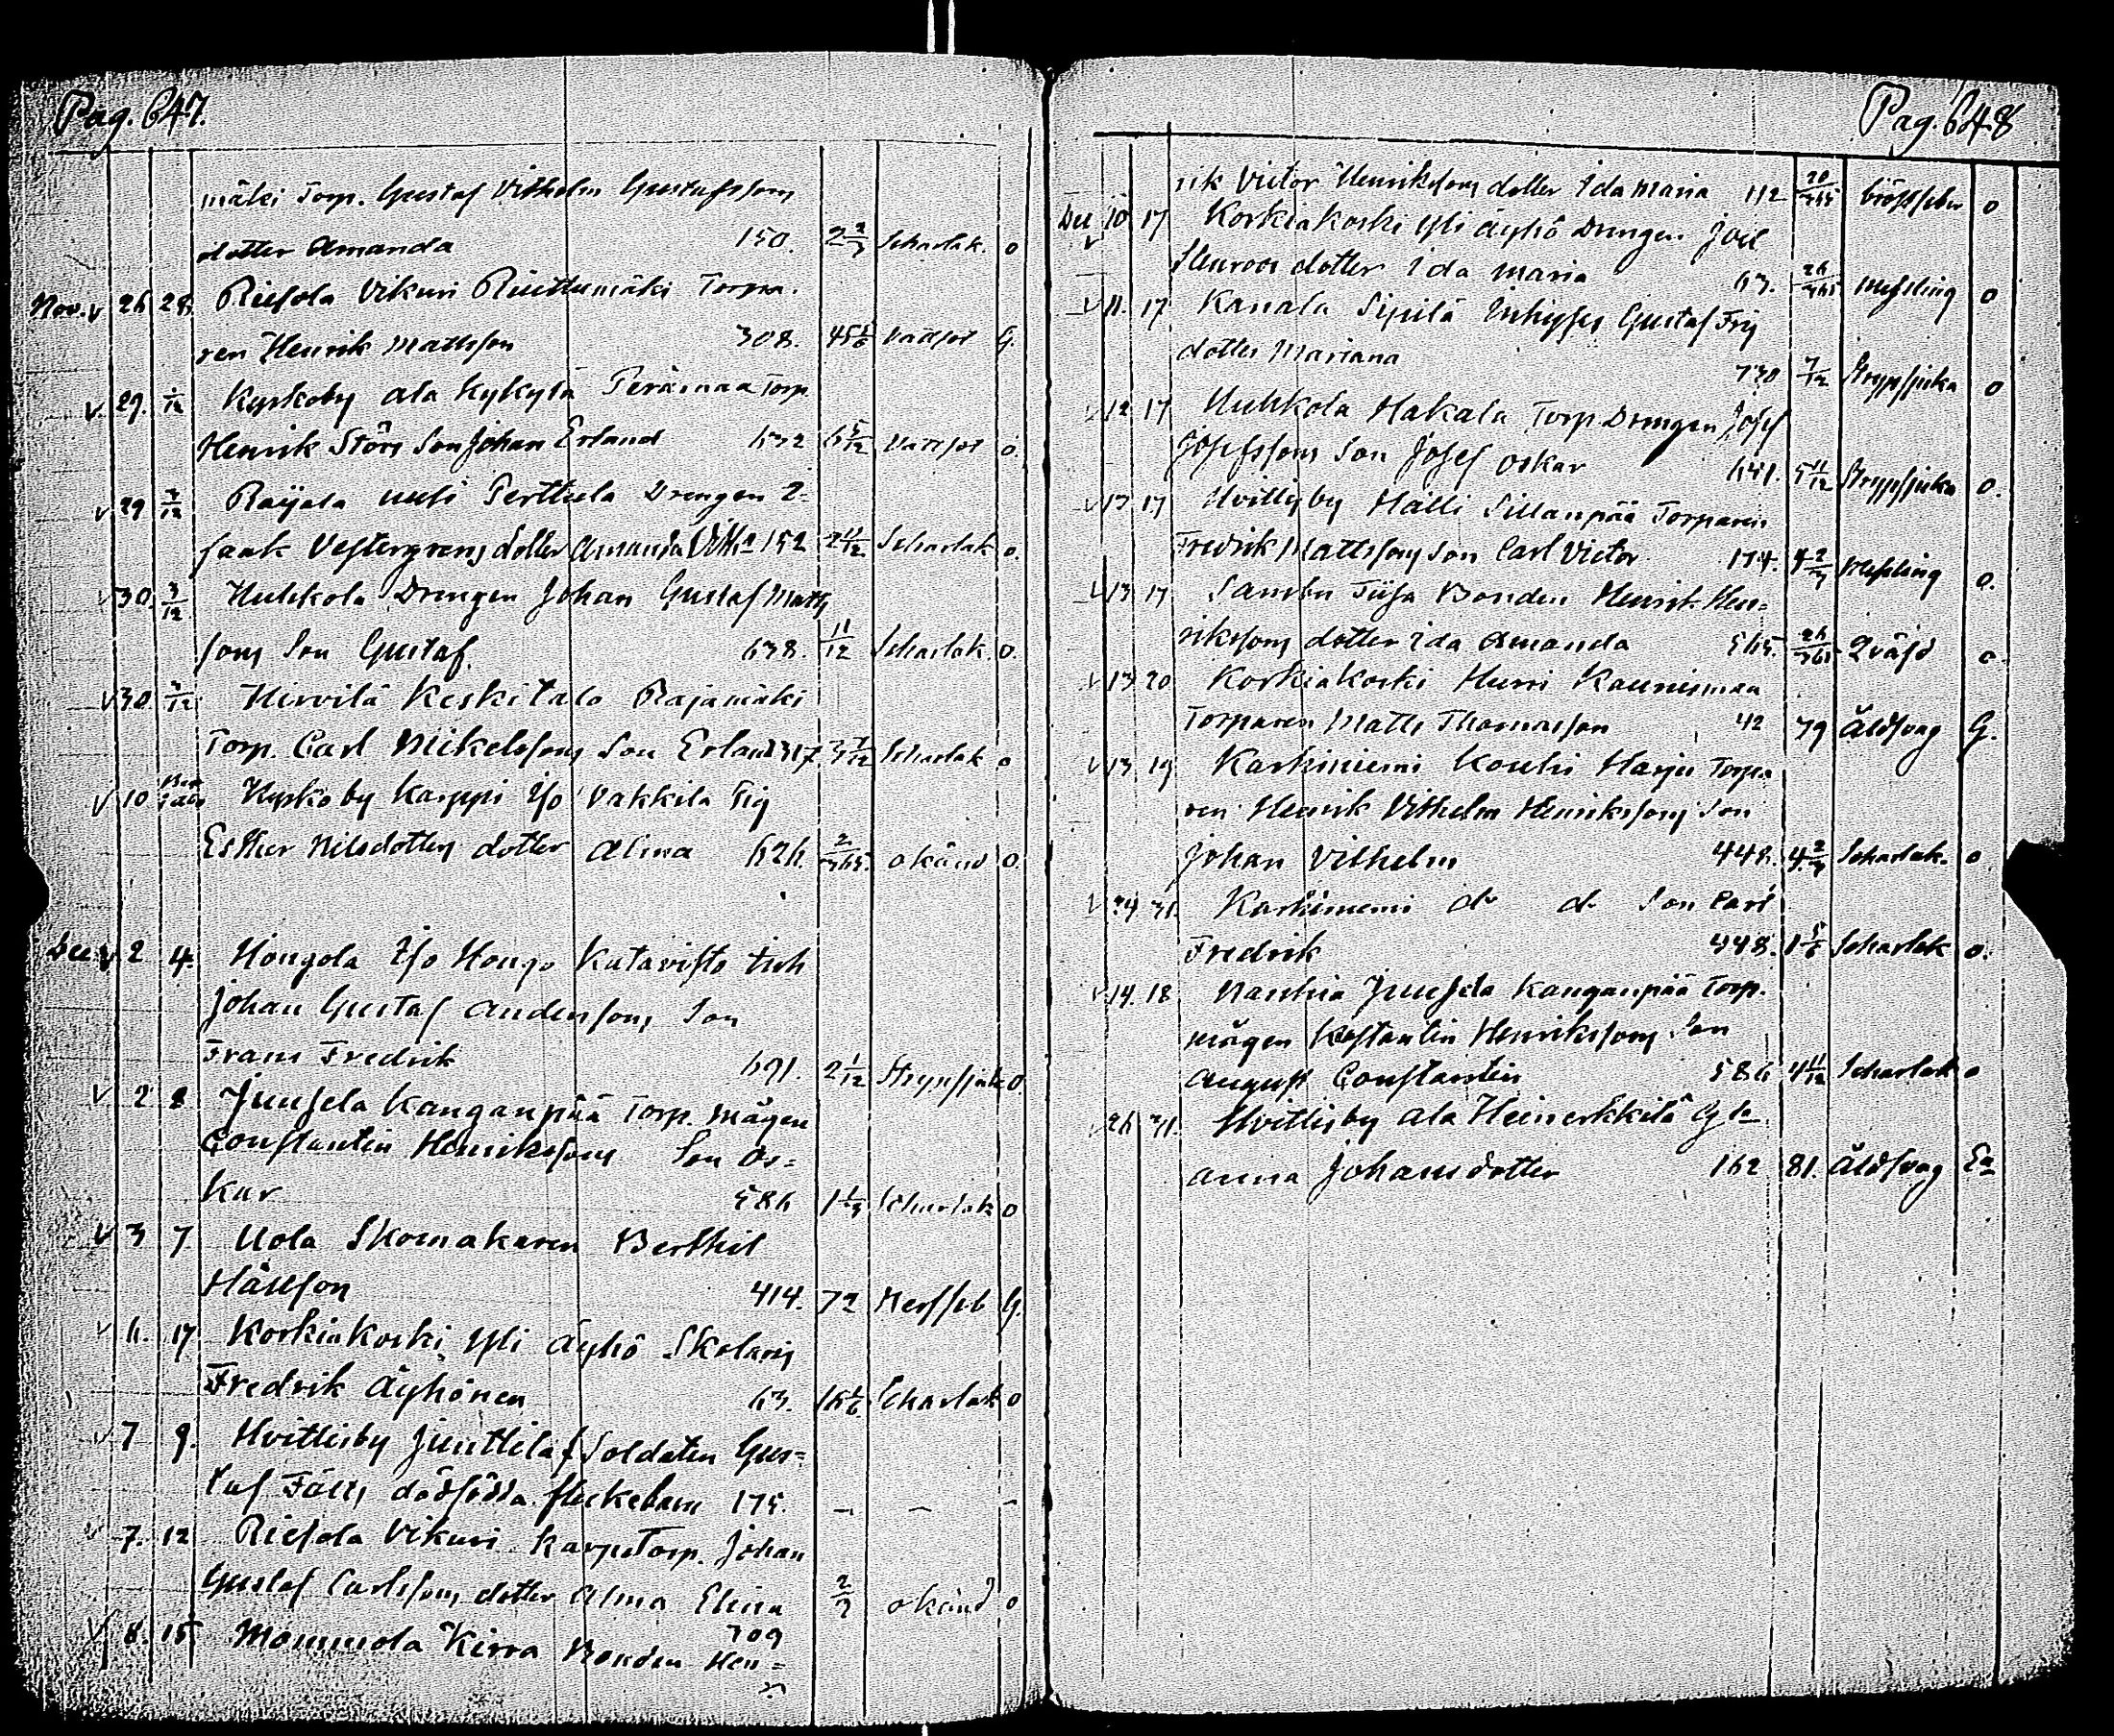 Pag. 647.
mäki Torp. Gustaf Vilhelm Gustafssons
dotter Amanda 150. 2 2/3 Scharlak. o
Nov. v 26 28 Riesola Vikuri Torpa.
ren Henrik Mattsson 308. 45 Vattsot G.
v. 29. 1/12 Kyrkoby ala Kykylä Perämaa Torp.
Henrik Störs Son Johan Erland 632 6 5/12 Vattsot o.
v 29 3/12 Raijala uusi Perttula Drengen I=
saak Vestergrens dotter Amanda Vilh:a 152 2 11/12 Scharlak o.
v 30. 3/12 Huhkola Drengen Johan Gustaf Matts
sons Son Gustaf. 638. 11/12 Scharlak. o.
v 30. 3/12 Hirvilä Keskitalo Rajamäki
Torp. Carl Mikelssons Son Erland 317 3 7/12 Scharlak o
v 10 Kyrkoby Karppi Iso Vakkila Pig
Esther Nilsdotters dotter Alina 626. 2/365. okänd o.
Dec v 2 4. Hongola Iso Hongo Katavisto Inh
Johan Gustaf Anderssons Son
Frans Fredrik 691. 2 1/12 Strypsjuk o.
v 2 8 Juusela Kanganpää Torp. mågen
Constantin Henrikssons Son Os=
kar 586 1 1/3 Scharlak o
v 3 7 Uola Skomakaren Berthil
Hänsson 414. 72 G.
v 6. 17 Korkiakoski yli Äyhö Skolarn
Fredrik Äyhönen 63. 16 1/6 Scharlak o
v 7 9. Hvittisby Junttila f Soldaten Gus=
taf Fälts dödfödda flickebarn 175. – – –
v 7. 12 Riesola Vikuri Karpu Torp. Johan
Gustaf Carlssons dotter Alma Elina 2/3 okänd o
709
v 8. 15 Mommola Kirra Bonden Hen=
Pag. 648
rik Victor Henrikssons dotter Ida Maria 112 20/365 bröstfeber o
Dec v 10 17 Korkiakoski yli äyhö Drengen Joel
Stenroos dotter Ida Maria 63. 26/365 messling o
v 11. 17 Kanala Sipilä Inhyses Gustaf Frij
dotter Mariana 730 7/12 Strypsjuka o
v 12 17 Huhkola Hakala Torp. Drengen Josef
Josefssons Son Josef Oskar 641. 5 11/12 Strypsjuka o.
v 13 17 Hvittisby Hälli Sillanpää Torparen
Fredrik Mattssons Son Carl Victor 174. 4 2/3 Messling o.
v 13 17 Sambu Tiisa Bonden Henrik Hen=
rikssons dotter Ida Amanda 565. 26/365 Qväsd o.
v 13 20 Korkiakoski Hurri Kaunismaa
Torparen Matts Thomasson 42 79 Åldsvag G.
v 13 19 Karhiniemi Kouhi Harju Torpa
ren Henrik Vilhelm Henrikssons Son
Johan Vilhelm 448. 4 2/3 Scharlak. o
v 24 31. Karhiniemi do do Son Carl
Fredrik 448. 1 5/6 Scharlak o.
v 14. 18 Naukia Juusela Kanganpää Torp.
mågen Konstantin Henrikssons Son
August Constantin 586 4 11/12 Scharlak o
26 31. Hvittisby ala Heinerkkilä
Anna Johansdotter 162 81. Åldsvag Ea